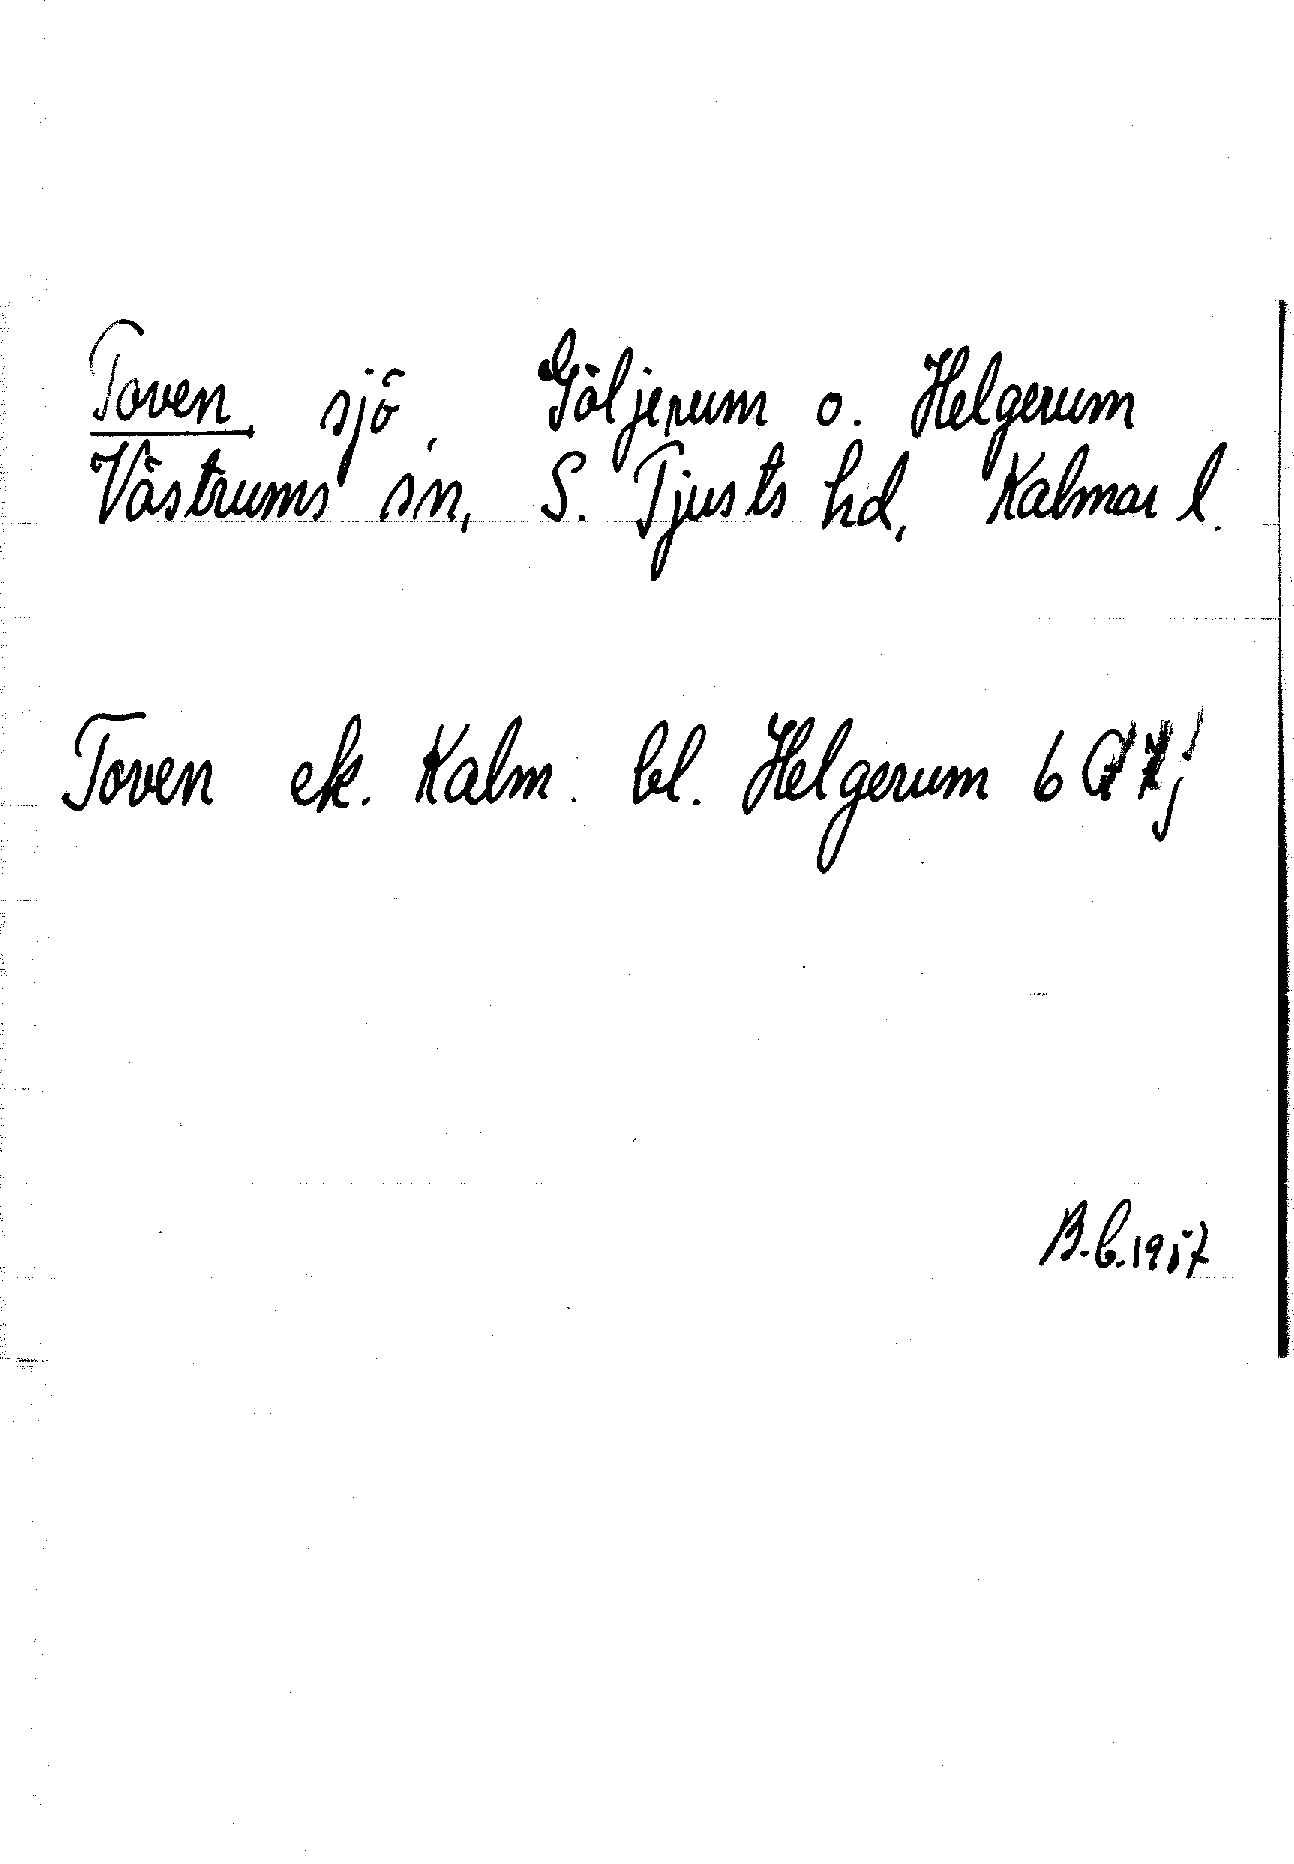 Toven, sjö, Göljerum o. Helgerum
Västrums sn, S. Tjusts hd, Kalmar l.
Toven ek. Kalm. bl. Helgerum 6
1957